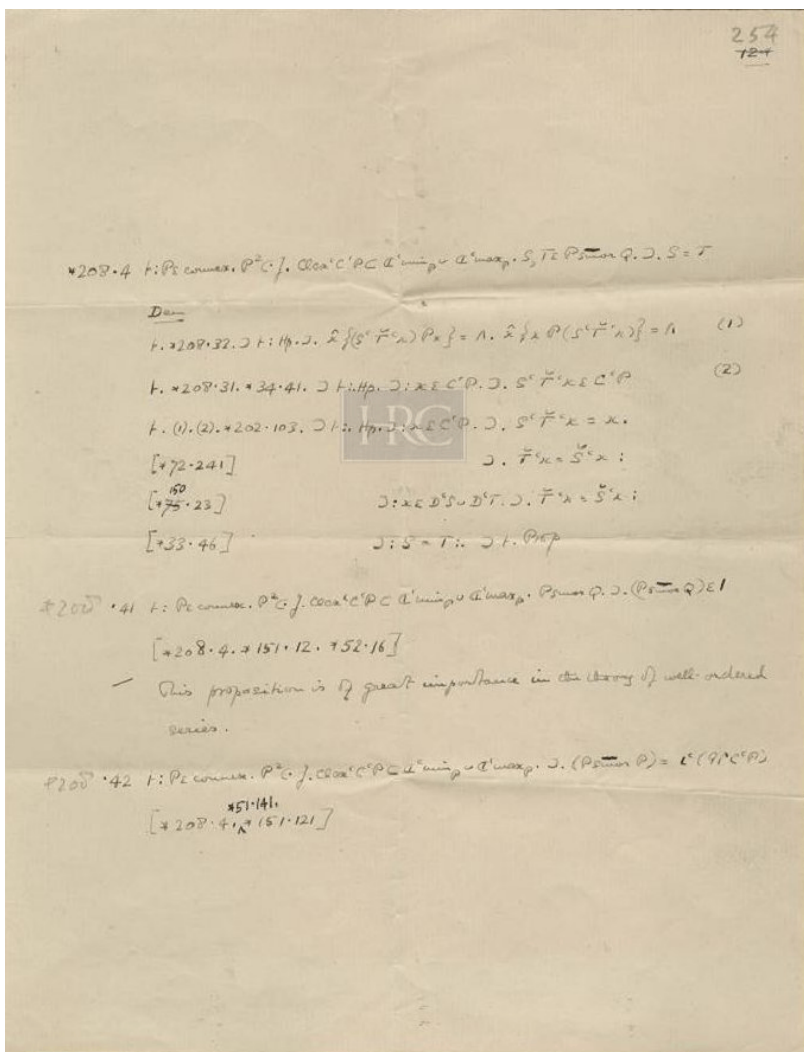 254
124
*208·4 ⊢: P ε connex. P² ⊂· J. Cl ex‘C‘P ⊂ ᗡ‘min_P ∪ ᗡ‘max_P. S, T ε P s̅m̅o̅r̅ Q. ⊃. S = T
Dem
⊢. *208·32. ⊃ ⊢: Hp. ⊃. x̂{(S‘T̆‘x) P x} = Λ. x̂{x P (S‘T̆‘x)} = Λ (1)
⊢. *208·31. *34·41. ⊃ ⊢:. Hp. ⊃: x ε C‘P. ⊃. S‘T̆‘x ε C‘P (2)
⊢. (1). (2). *202·103. ⊃ ⊢:. Hp. ⊃: x ε C‘P. ⊃. S‘T̆‘x = x.
[*72·241] ⊃. T̆‘x = S̆‘x :
150
[*75·23] ⊃: x ε D‘S ∪ D‘T. ⊃. T̆‘x = S̆‘x :
[*33·46] ⊃: S = T :. ⊃ ⊢. Prop
HRC
*208 ·41 ⊢: P ε connex. P² ⊂· J. Cl ex‘C‘P ⊂ ᗡ‘min_P ∪ ᗡ‘max_P. P smor Q. ⊃. (P s̅m̅o̅r̅ Q) ε 1
[*208·4. *151·12. *52·16]
— This proposition is of great importance in the theory of well-ordered
series.
*208 ·42 ⊢: P ε connex. P² ⊂· J. Cl ex‘C‘P ⊂ ᗡ‘min_P ∪ ᗡ‘max_P. ⊃. (P s̅m̅o̅r̅ P) = ι‘(I↾C‘P)
*51·141.
[*208·4. *151·121]